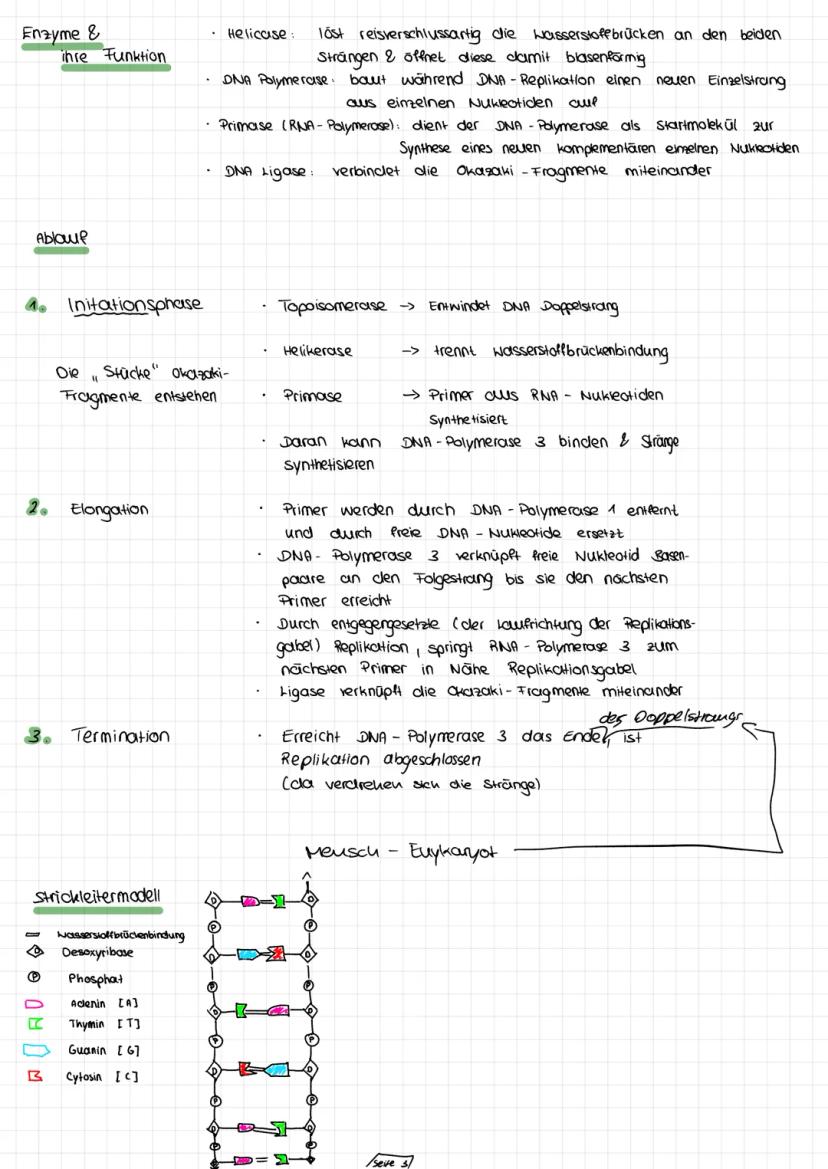 Enzyme & ihre Funktion
· Helicase: löst reisverschlussartig die Wasserstoffbrücken an den beiden
Strängen & öffnet diese damit blasenförmig
· DNA Polymerase: baut während DNA-Replikation einen neuen Einzelstrang
aus einzelnen Nukleotiden auf
· Primase (RNA-Polymerase): dient der DNA-Polymerase als Startmolekül zur
Synthese eines neuen komplementären einzelnen Nukleotiden
· DNA Ligase: verbindet die Okazaki-Fragmente miteinander
Ablauf
1. Initationsphase
· Topoisomerase → Entwindet DNA Doppelstrang
· Helikerase → trennt Wasserstoffbrückenbindung
Die "Stücke" Okazaki-
Fragmente entstehen
· Primase → Primer aus RNA-Nukleotiden
Synthetisiert
· Daran kann DNA-Polymerase 3 binden & Stränge
synthetisieren
2. Elongation
· Primer werden durch DNA-Polymerase 1 entfernt
und durch freie DNA-Nukleotide ersetzt
· DNA-Polymerase 3 verknüpft freie Nukleotid Basen-
paare an den Folgestrang bis sie den nächsten
Primer erreicht
· Durch entgegengesetzte (der Laufrichtung der Replikations-
gabel) Replikation, springt RNA-Polymerase 3 zum
nächsten Primer in Nähe Replikationsgabel
· Ligase verknüpft die Okazaki-Fragmente miteinander
des Doppelstrangs
3. Termination
· Erreicht DNA-Polymerase 3 das Ende, ist
Replikation abgeschlossen
(da verdrehen sich die Stränge)
Mensch - Euykaryot
Strickleitermodell
Wasserstoffbrückenbindung
D Desoxyribase
P Phosphat
Adenin [A]
Thymin [T]
Guanin [G]
Cytosin [C]
Seite 3